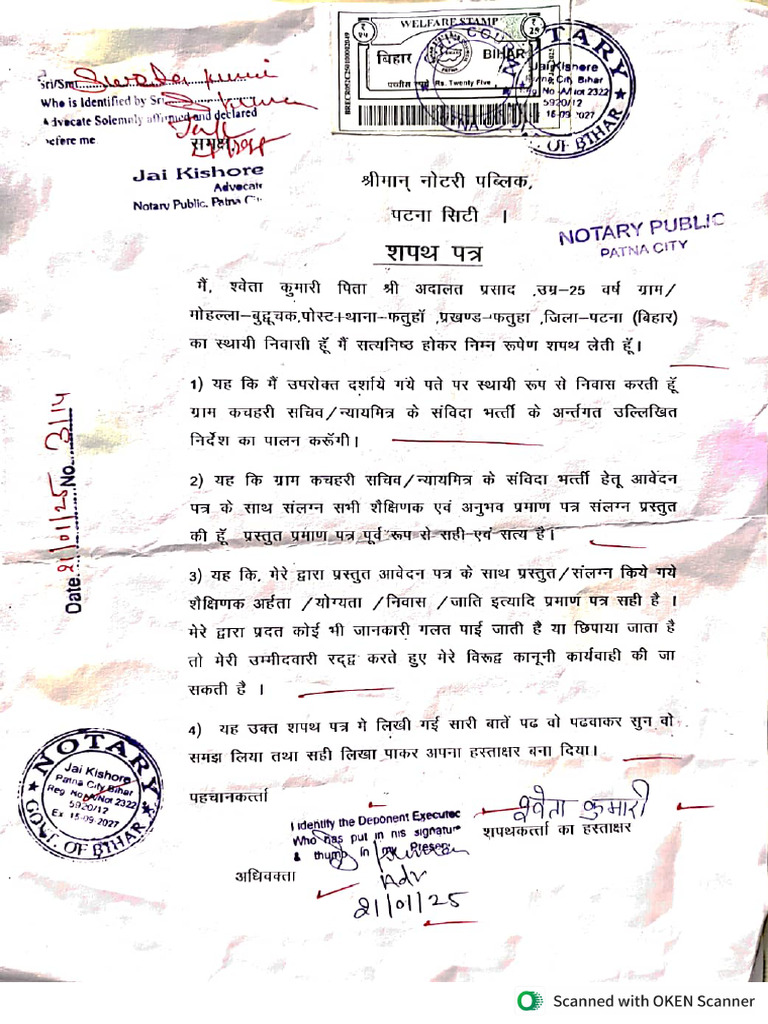 WELFARE STAMP
₹ 25
₹ 25
बिहार
BIHAR
Rs. Twenty Five
BRECR052C25010000
NOTARY
Jai Kishore
Patna City Bihar
Reg No-A/Not 2322
5920/12
15-09-2027
OF BIHAR
Sri/Smt
Who is Identified by Sri
Advocate Solemnly affirmed and declared
before me
समक्ष
Jai Kishore
Advocate
Notary Public, Patna City
श्रीमान् नोटरी पब्लिक,
पटना सिटी ।
NOTARY PUBLIC
PATNA CITY
शपथ पत्र
मैं, श्वेता कुमारी पिता श्री अदालत प्रसाद ,उम्र-25 वर्ष ग्राम/
मोहल्ला-बुद्वूचक,पोस्ट+थाना-फतुहाँ ,प्रखण्ड-फतुहा ,जिला-पटना (बिहार)
का स्थायी निवासी हूँ मैं सत्यनिष्ठ होकर निम्न रूपेण शपथ लेती हूँ।
1) यह कि मैं उपरोक्त दर्शाये गये पते पर स्थायी रूप से निवास करती हूँ
ग्राम कचहरी सचिव/न्यायमित्र के संविदा भर्त्ती के अर्न्तगत उल्लिखित
निर्देश का पालन करूँगी।
2) यह कि ग्राम कचहरी सचिव/न्यायमित्र के संविदा भर्त्ती हेतू आवेदन
पत्र के साथ संलग्न सभी शैक्षिणक एवं अनुभव प्रमाण पत्र संलग्न प्रस्तुत
की हूँ प्रस्तुत प्रमाण पत्र पूर्व रूप से सही-एवं सत्य है।
3) यह कि, मेरे द्वारा प्रस्तुत आवेदन पत्र के साथ प्रस्तुत/संलग्न किये गये
शैक्षिणक अर्हता /योग्यता /निवास /जाति इत्यादि प्रमाण पत्र सही है ।
मेरे द्वारा प्रदत कोई भी जानकारी गलत पाई जाती है या छिपाया जाता है
तो मेरी उम्मीदवारी रद्द्व करते हुए मेरे विरूद्व कानूनी कार्यवाही की जा
सकती है ।
4) यह उक्त शपथ पत्र मे लिखी गई सारी बातें पढ वो पढवाकर सुन वो
समझ लिया तथा सही लिखा पाकर अपना हस्ताक्षर बना दिया।
Date 21/01/25 No. 3114
NOTARY
Jai Kishore
Patna City Bihar
Reg No-A/Not 2322
5920/12
Ex 15-09-2027
GOVT. OF BIHAR
पहचानकर्त्ता
I identify the Deponent Executec
Who has put in his signature
& thump in my Presen
श्वेता कुमारी
शपथकर्त्ता का हस्ताक्षर
अधिवक्ता
Adv
21/01/25
Scanned with OKEN Scanner